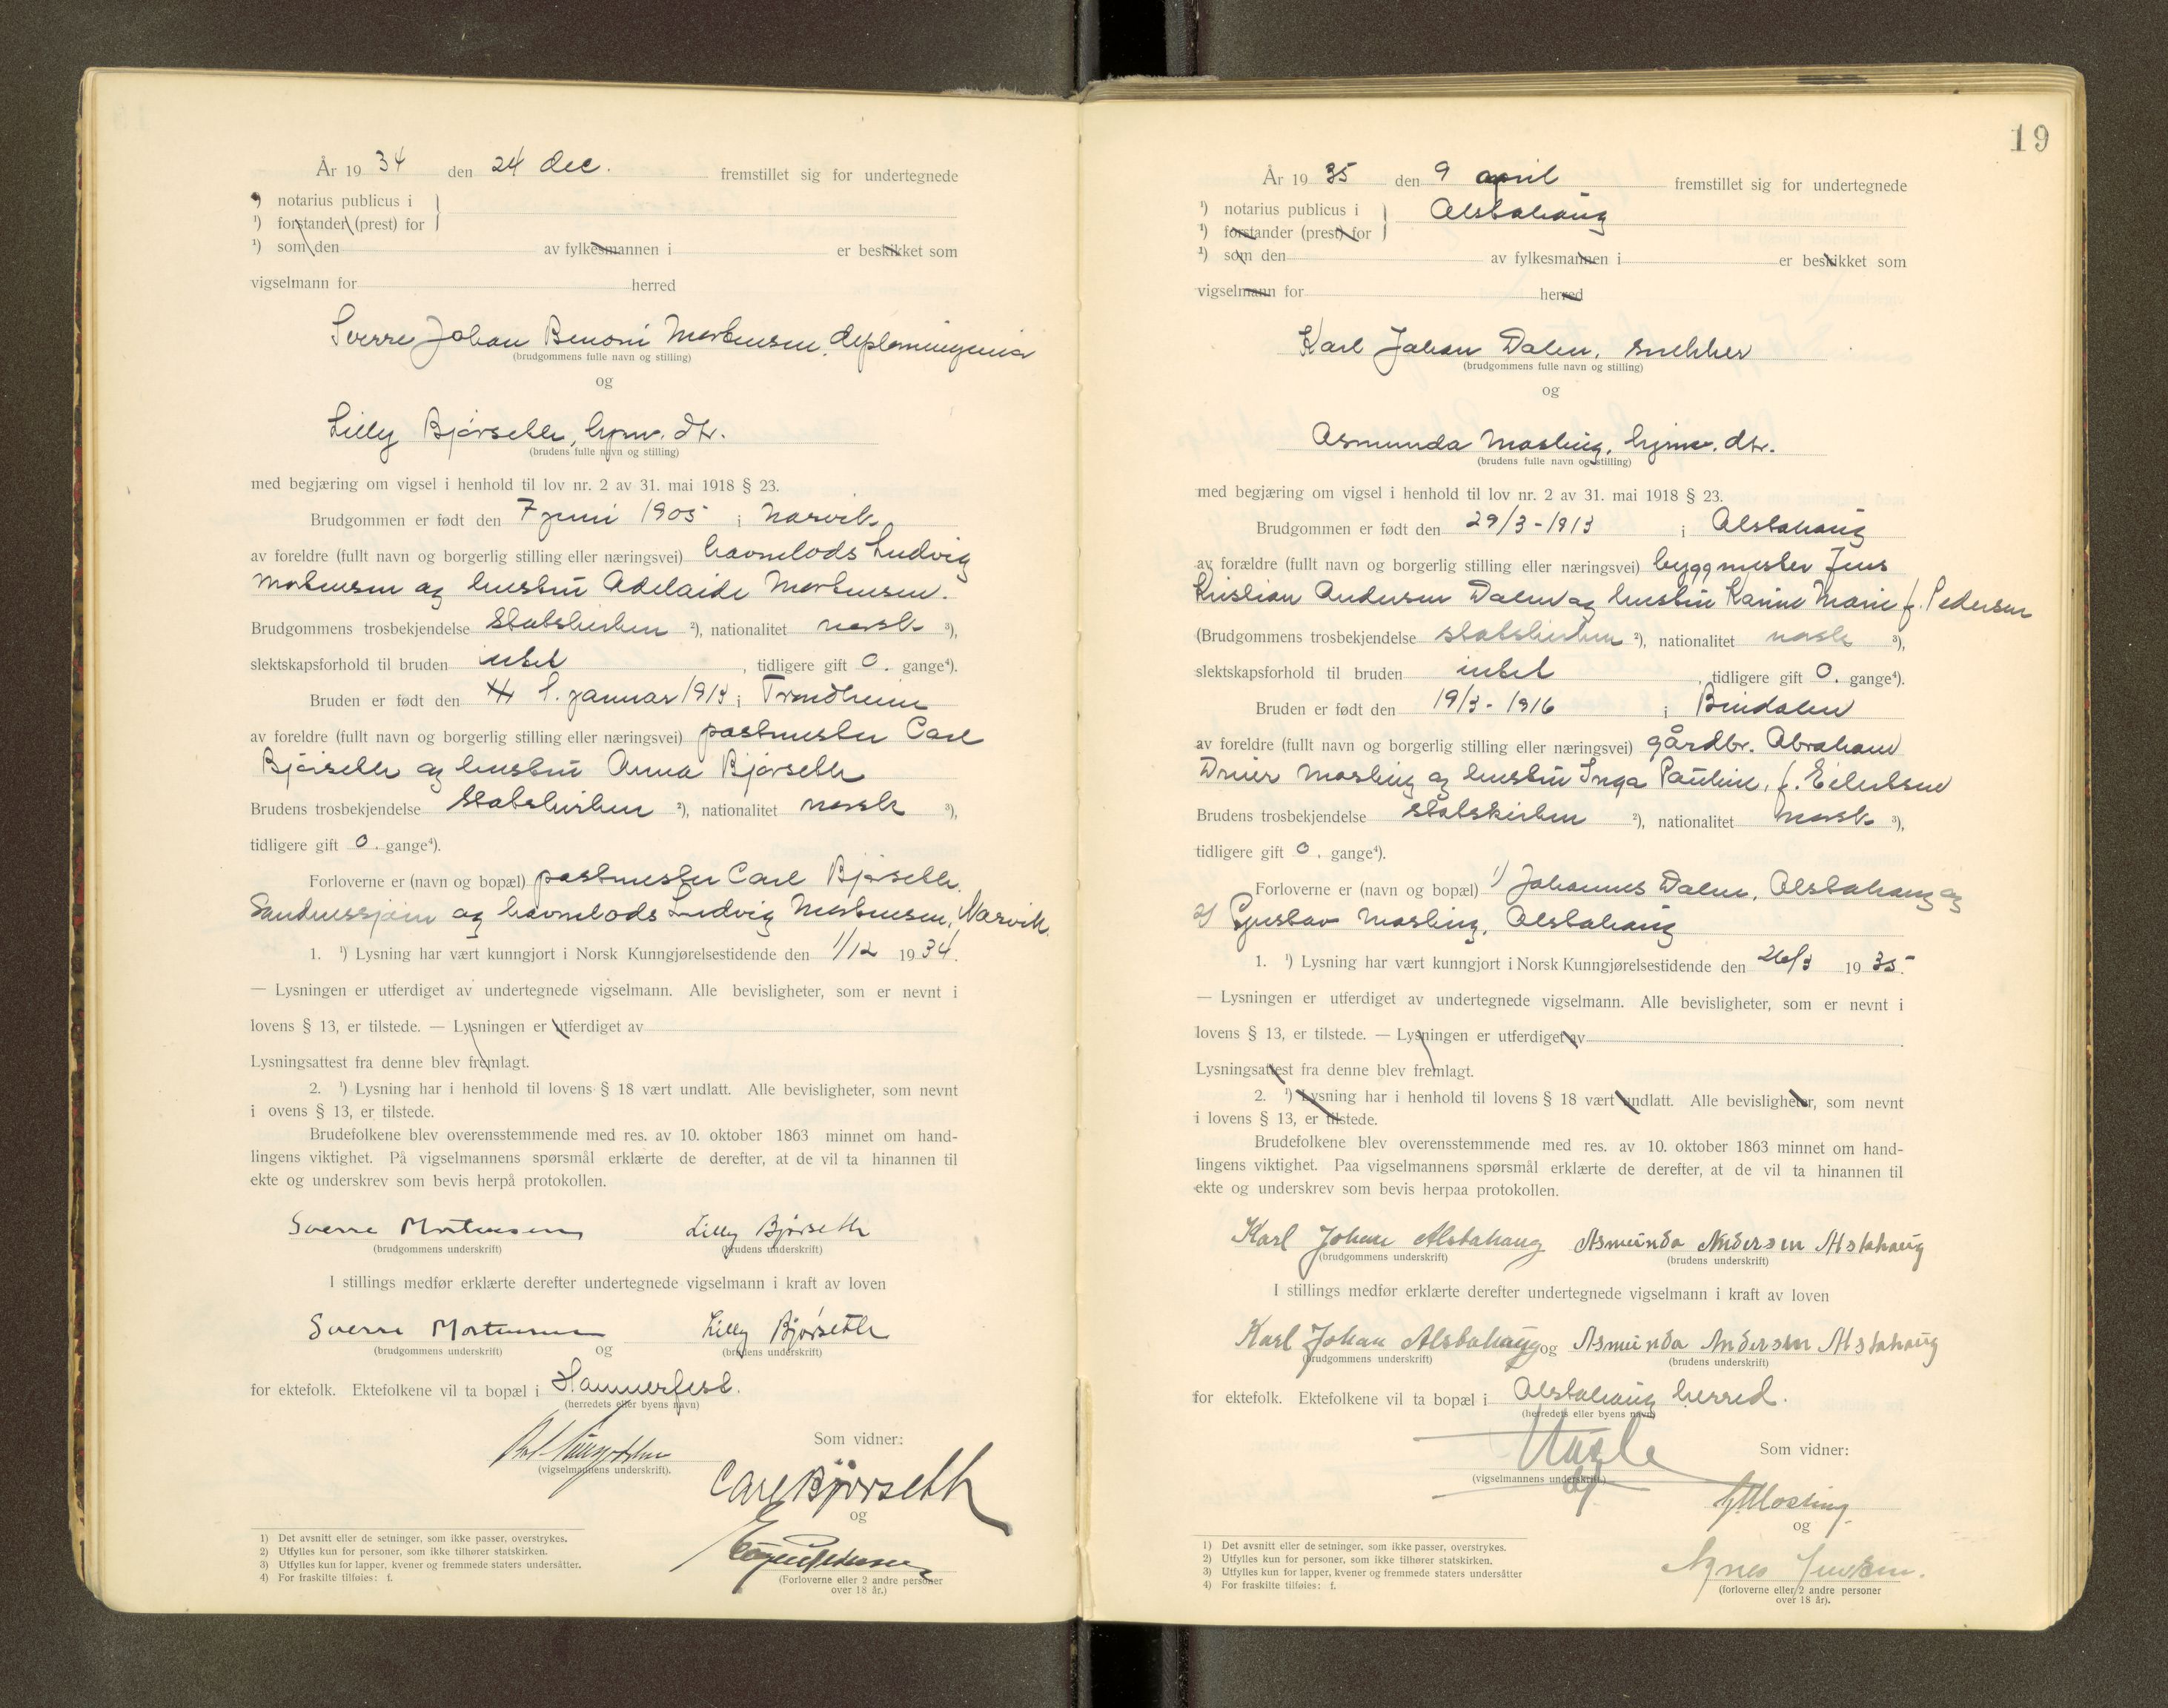 År 1934 den 24 dec. fremstillet sig for undertegnede
¹) notarius publicus i
¹) forstander (prest) for
¹) som den av fylkesmannen i er beskikket som
vigselmann for herred
Sverre Johan Benoni Mortensen, diplomingeniør
(brudgommens fulle navn og stilling)
og
Lilly Bjørseth, hjmv. dtr.
(brudens fulle navn og stilling)
med begjæring om vigsel i henhold til lov nr. 2 av 31. mai 1918 § 23.
Brudgommen er født den 7 juni 1905 i Narvik
av foreldre (fullt navn og borgerlig stilling eller næringsvei) havnelods Ludvig
Mortensen og hustru Adelaide Mortensen.
Brudgommens trosbekjendelse Statskirken ²), nationalitet norsk ³),
slektskapsforhold til bruden intet, tidligere gift 0. gange⁴).
Bruden er født den 1. januar 1913 i Trondheim
av foreldre (fullt navn og borgerlig stilling eller næringsvei) postmester Carl
Bjørseth og hustru Anna Bjørseth
Brudens trosbekjendelse Statskirken ²), nationalitet norsk ³),
tidligere gift 0. gange⁴).
Forloverne er (navn og bopæl) postmester Carl Bjørseth,
Sandnessjøen og havnelods Ludvig Mortensen, Narvik.
1. ¹) Lysning har vært kunngjort i Norsk Kunngjørelsestidende den 1/12 1934.
— Lysningen er utferdiget av undertegnede vigselmann. Alle bevisligheter, som er nevnt i
lovens § 13, er tilstede. — Lysningen er utferdiget av
Lysningsattest fra denne blev fremlagt.
2. ¹) Lysning har i henhold til lovens § 18 vært undlatt. Alle bevisligheter, som nevnt
i ovens § 13, er tilstede.
Brudefolkene blev overensstemmende med res. av 10. oktober 1863 minnet om hand-
lingens viktighet. På vigselmannens spørsmål erklærte de derefter, at de vil ta hinannen til
ekte og underskrev som bevis herpå protokollen.
Sverre Mortensen Lilly Bjørseth
(brudgommens underskrift) (brudens underskrift)
I stillings medfør erklærte derefter undertegnede vigselmann i kraft av loven
Sverre Mortensen og Lilly Bjørseth
(brudgommens underskrift) (brudens underskrift)
for ektefolk. Ektefolkene vil ta bopæl i Hammerfest.
(herredets eller byens navn)
(vigselmannens underskrift).
Som vidner:
Carl Bjørseth
og
(Forloverne eller 2 andre personer
over 18 år.)
1) Det avsnitt eller de setninger, som ikke passer, overstrykes.
2) Utfylles kun for personer, som ikke tilhører statskirken.
3) Utfylles kun for lapper, kvener og fremmede staters undersåtter.
4) For fraskilte tilføies: f.
19
År 1935 den 9 april fremstillet sig for undertegnede
¹) notarius publicus i Alstahaug
¹) forstander (prest) for
¹) som den av fylkesmannen i er beskikket som
vigselmann for herred
Karl Johan Dalen, snekker
(brudgommens fulle navn og stilling)
og
Asmunda Mosling, hjmv. dtr.
(brudens fulle navn og stilling)
med begjæring om vigsel i henhold til lov nr. 2 av 31. mai 1918 § 23.
Brudgommen er født den 29/3-1913 i Alstahaug
av forældre (fullt navn og borgerlig stilling eller næringsvei) byggmester Jens
Kristian Andersen Dalen og hustru Karine Marie f. Pedersen
(Brudgommens trosbekjendelse statskirken ²), nationalitet norsk ³),
slektskapsforhold til bruden intet, tidligere gift 0. gange⁴).
Bruden er født den 19/3-1916 i Bindalen
av foreldre (fullt navn og borgerlig stilling eller næringsvei) gårdbr. Abraham
Mosling og hustru Inga Pauline, f. Eilertsen
Brudens trosbekjendelse statskirken ²), nationalitet norsk ³),
tidligere gift 0. gange⁴).
Forloverne er (navn og bopæl) 1) Johannes Dalen, Alstahaug og
2) Gustav Mosling, Alstahaug
1. ¹) Lysning har vært kunngjort i Norsk Kunngjørelsestidende den 26/3 1935.
— Lysningen er utferdiget av undertegnede vigselmann. Alle bevisligheter, som er nevnt i
lovens § 13, er tilstede. — Lysningen er utferdiget av
Lysningsattest fra denne blev fremlagt.
2. ¹) Lysning har i henhold til lovens § 18 vært undlatt. Alle bevisligheter, som nevnt
i lovens § 13, er tilstede.
Brudefolkene blev overensstemmende med res. av 10. oktober 1863 minnet om hand-
lingens viktighet. Paa vigselmannens spørsmål erklærte de derefter, at de vil ta hinannen til
ekte og underskrev som bevis herpaa protokollen.
Karl Johan Alstahaug Asmunda Andersen Alstahaug
(brudgommens underskrift) (brudens underskrift)
I stillings medfør erklærte derefter undertegnede vigselmann i kraft av loven
Karl Johan Alstahaug og Asmunda Andersen Alstahaug
(brudgommens underskrift) (brudens underskrift)
for ektefolk. Ektefolkene vil ta bopæl i Alstahaug herred.
(herredets eller byens navn)
(vigselmannens underskrift.)
Som vidner:
G. Mosling.
og
Agnes Jensen.
(forloverne eller 2 andre personer
over 18 år).
1) Det avsnitt eller de setninger, som ikke passer, overstrykes.
2) Utfylles kun for personer, som ikke tilhører statskirken.
3) Utfylles kun for lapper, kvener og fremmede staters undersåtter
4) For fraskilte tilføies: f.